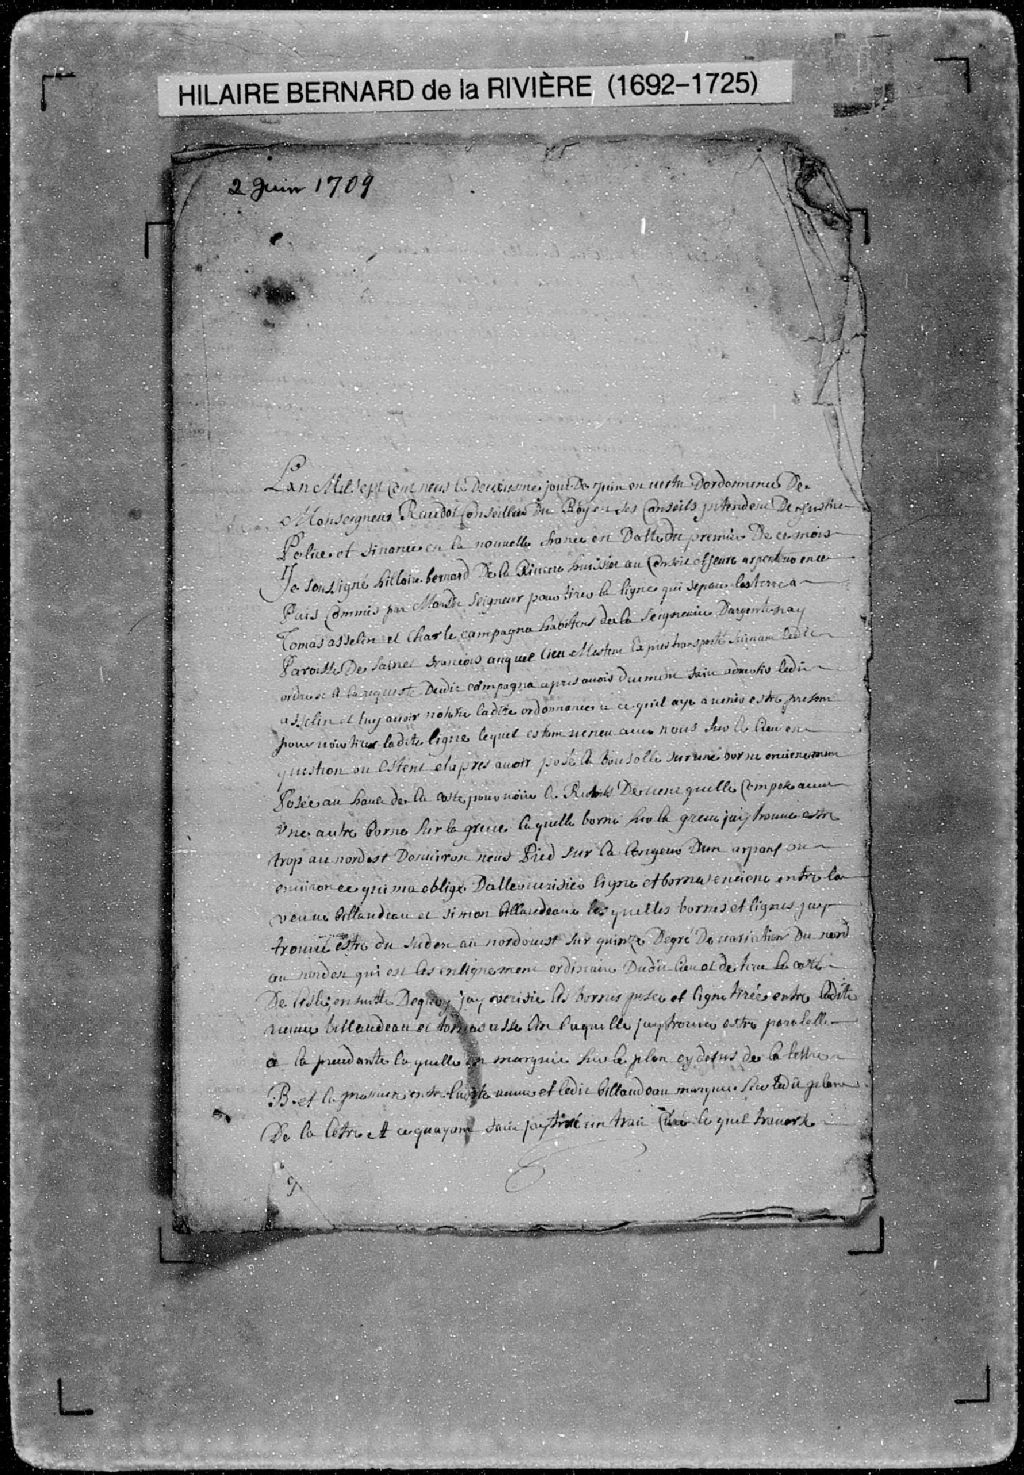 HILAIRE BERNARD de la RIVIÈRE (1692–1725)
2 Juin 1709
Lan Mil sept Cent neuf le Deuxiesme jour De Juin en vertu Dordonnance De
Monseigneur Raudot Conseiller Du Roy en ses Conseils jntendent De justice
Police et finance en la nouvelle france en Datte Du premier De ce mois
Je soussigné hillaire bernard De la Riviere huissier au Conseil arpenteur en ce
Pais Commis par Mondit Seigneur pour tirer la ligne qui separe les terre a
Tomas asselin et Charle campagna habitens de la Seigneurie Dargentenay
Paroisse De Sainct francois auquel lieu Mestent Expres transporté suivant ledit
ordre et a la requeste Dudit campagna apres avoir Duement faire advertir ledit
asselin et luy avoir notifié ladite ordonnance a ce quil aye a venir estre present
pour voir tirer ladite ligne lequel estant veneu avec nous sur le lieu en
question ou Estent et apres avoir posé la bousolle sur une borne encienement
Posée au haut de la coste pour voir le Rumb De vent quelle Compose avec
Vne autre borne sur la greve laquelle borne sur la greve jay trouvé estre
trop au nordest Denviron neuf Pied sur la longeur Dun arpant ou
environ ce qui ma obligé Daller verifier ligne et bornes encienne entre la
veuve billaudeau et simon billaudeau lesquelles bornes et lignes jay
trouvé estre du sudest au nordouest sur quinze Degré De variation Du nord
au nordest qui est les enlignement ordinaire Dudit lieu et de tout le costé
De lisle ensuitte Dequoy jay verifié les bornes posée et ligne tirée entre ladite
veuve billaudeau et tomas asselin laquelle jay trouvé estre paralelle
a la precedante laquelle est marquée sur le plan cy desus de la lettre
B et la premiere entre ladite veuve et ledit billaudeau marquée sur ledit plan
De la lettre A ce quayant faict jay tiré un trait carré lequel traverse